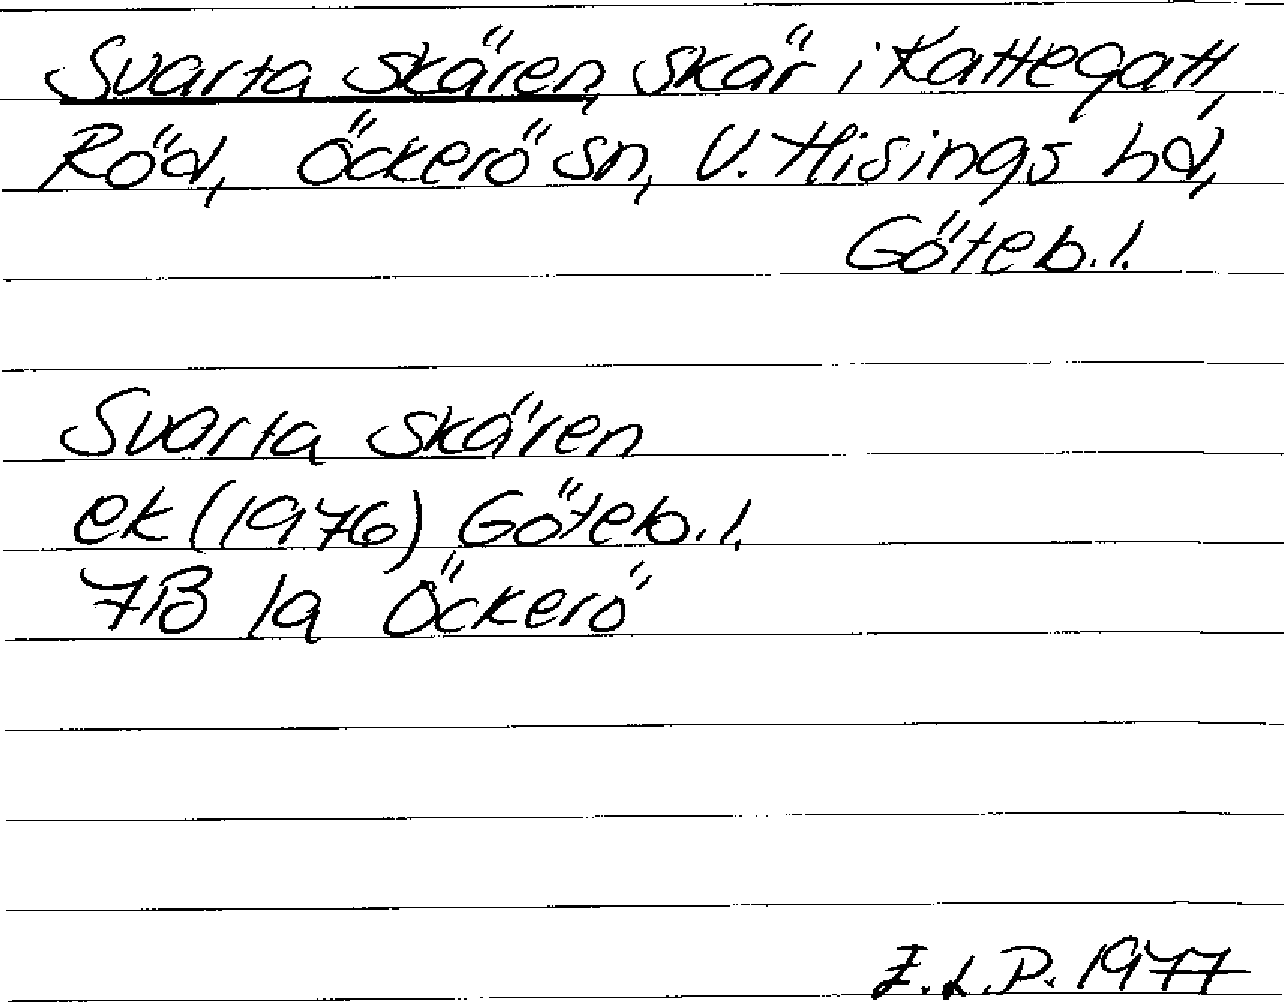 Svarta skären, skär i Kattegatt,
Röd, Öckerö sn, V. Hisings hd,
Göteb. l.
Svarta skären
ek (1976) Göteb. l.
7B 1a Öckerö
E.L.P. 1977